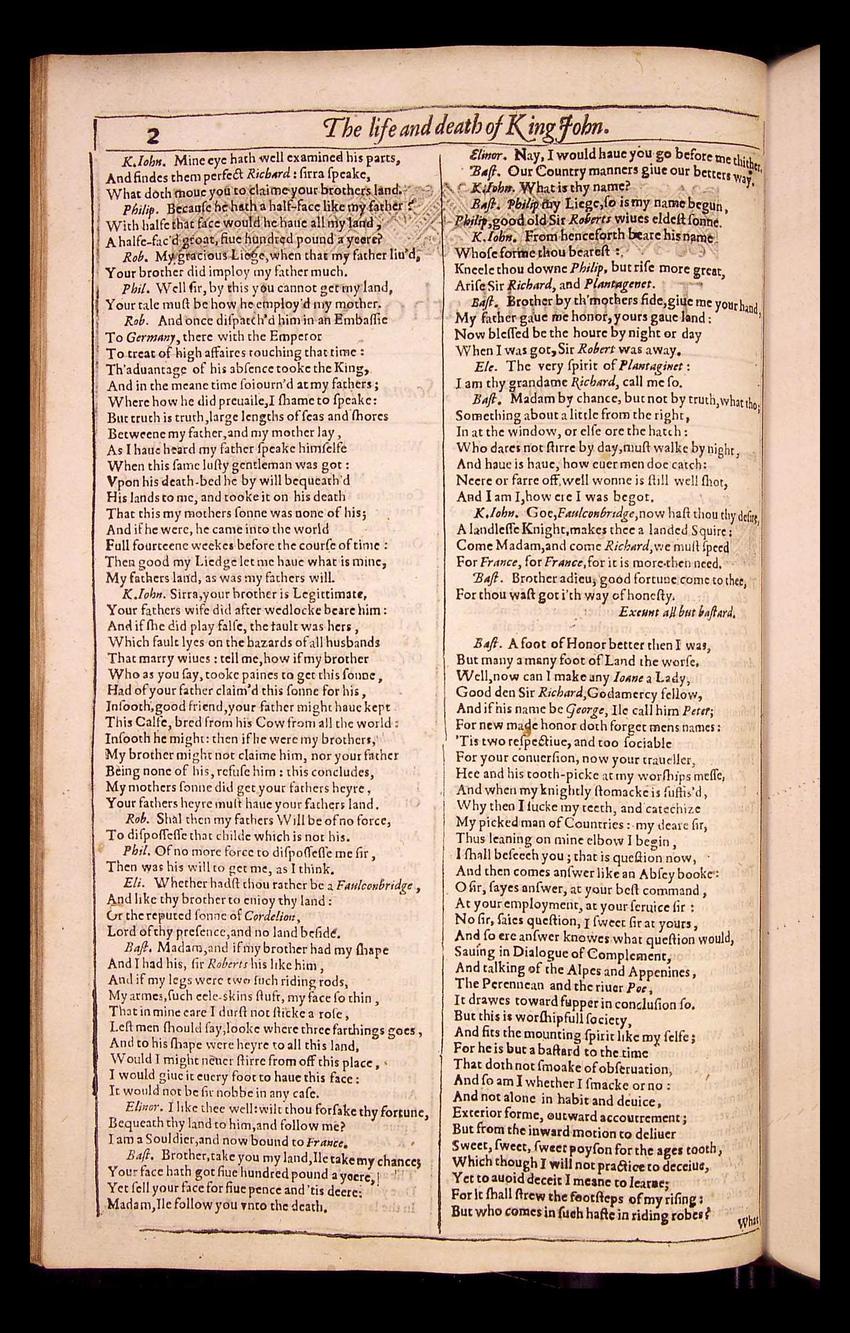 2
The life and death of King John.
K.Iohn. Mine eye hath well examined his parts,
And findes them perfect Richard: sirra speake,
What doth moue you to claime your brothers land.
Philip. Because he hath a half-face like my father?
With halfe that face would he haue all my land,
A halfe-fac'd groat, fiue hundred pound a yeere?
Rob. My gracious Liege, when that my father liu'd,
Your brother did imploy my father much.
Phil. Well sir, by this you cannot get my land,
Your tale must be how he employ'd my mother.
Rob. And once dispatch'd him in an Embassie
To Germany, there with the Emperor
To treat of high affaires touching that time:
Th'aduantage of his absence tooke the King,
And in the meane time soiourn'd at my fathers;
Where how he did preuaile, I shame to speake:
But truth is truth, large lengths of seas and shores
Betweene my father, and my mother lay,
As I haue heard my father speake himselfe
When this same lusty gentleman was got:
Vpon his death-bed he by will bequeath'd
His lands to me, and tooke it on his death
That this my mothers sonne was none of his;
And if he were, he came into the world
Full fourteene weekes before the course of time:
Then good my Liedge let me haue what is mine,
My fathers land, as was my fathers will.
K.Iohn. Sirra, your brother is Legittimate,
Your fathers wife did after wedlocke beare him:
And if she did play false, the fault was hers,
Which fault lyes on the hazards of all husbands
That marry wiues: tell me, how if my brother
Who as you say, tooke paines to get this sonne,
Had of your father claim'd this sonne for his,
Insooth, good friend, your father might haue kept
This Calfe, bred from his Cow from all the world:
Insooth he might: then if he were my brothers,
My brother might not claime him, nor your father
Being none of his, refuse him: this concludes,
My mothers sonne did get your fathers heyre,
Your fathers heyre must haue your fathers land.
Rob. Shal then my fathers Will be of no force,
To dispossesse that childe which is not his.
Phil. Of no more force to dispossesse me sir,
Then was his will to get me, as I think.
Eli. Whether hadst thou rather be a Faulconbridge,
And like thy brother to enioy thy land:
Or the reputed sonne of Cordelion,
Lord of thy presence, and no land beside.
Bast. Madam, and if my brother had my shape
And I had his, sir Roberts his like him,
And if my legs were two such riding rods,
My armes, such eele-skins stuft, my face so thin,
That in mine eare I durst not sticke a rose,
Lest men should say, looke where three farthings goes,
And to his shape were heyre to all this land,
Would I might neuer stirre from off this place,
I would giue it euery foot to haue this face:
It would not be sir nobbe in any case.
Elinor. I like thee well: wilt thou forsake thy fortune,
Bequeath thy land to him, and follow me?
I am a Souldier, and now bound to France.
Bast. Brother, take you my land, Ile take my chance;
Your face hath got fiue hundred pound a yeere,
Yet sell your face for fiue pence and 'tis deere:
Madam, Ile follow you vnto the death.
Elinor. Nay, I would haue you go before me thither.
Bast. Our Country manners giue our betters way.
K.Iohn. What is thy name?
Bast. Philip my Liege, so is my name begun,
Philip, good old Sir Roberts wiues eldest sonne.
K.Iohn. From henceforth beare his name
Whose forme thou bearest:
Kneele thou downe Philip, but rise more great,
Arise Sir Richard, and Plantagenet.
Bast. Brother by th'mothers side, giue me your hand,
My father gaue me honor, yours gaue land:
Now blessed be the houre by night or day
When I was got, Sir Robert was away.
Ele. The very spirit of Plantaginet:
I am thy grandame Richard, call me so.
Bast. Madam by chance, but not by truth, what tho;
Something about a little from the right,
In at the window, or else ore the hatch:
Who dares not stirre by day, must walke by night,
And haue is haue, how euer men doe catch:
Neere or farre off, well wonne is still well shot,
And I am I, how ere I was begot.
K.Iohn. Goe, Faulconbridge, now hast thou thy desire,
A landlesse Knight, makes thee a landed Squire:
Come Madam, and come Richard, we must speed
For France, for France, for it is more then need.
Bast. Brother adieu, good fortune come to thee,
For thou wast got i'th way of honesty.
Exeunt all but bastard.
Bast. A foot of Honor better then I was,
But many a many foot of Land the worse.
Well, now can I make any Ioane a Lady,
Good den Sir Richard, Godamercy fellow,
And if his name be George, Ile call him Peter;
For new made honor doth forget mens names:
'Tis two respectiue, and too sociable
For your conuersion, now your traueller,
Hee and his tooth-picke at my worships messe,
And when my knightly stomacke is suffis'd,
Why then I sucke my teeth, and catechize
My picked man of Countries: my deare sir,
Thus leaning on mine elbow I begin,
I shall beseech you; that is question now,
And then comes answer like an Absey booke:
O sir, sayes answer, at your best command,
At your employment, at your seruice sir:
No sir, saies question, I sweet sir at yours,
And so ere answer knowes what question would,
Sauing in Dialogue of Complement,
And talking of the Alpes and Appenines,
The Perennean and the riuer Poe,
It drawes toward supper in conclusion so.
But this is worshipfull society,
And fits the mounting spirit like my selfe;
For he is but a bastard to the time
That doth not smoake of obseruation,
And so am I whether I smacke or no:
And not alone in habit and deuice,
Exterior forme, outward accoutrement;
But from the inward motion to deliuer
Sweet, sweet, sweet poyson for the ages tooth,
Which though I will not practice to deceiue,
Yet to auoid deceit I meane to learne;
For it shall strew the footsteps of my rising:
But who comes in such haste in riding robes?
What